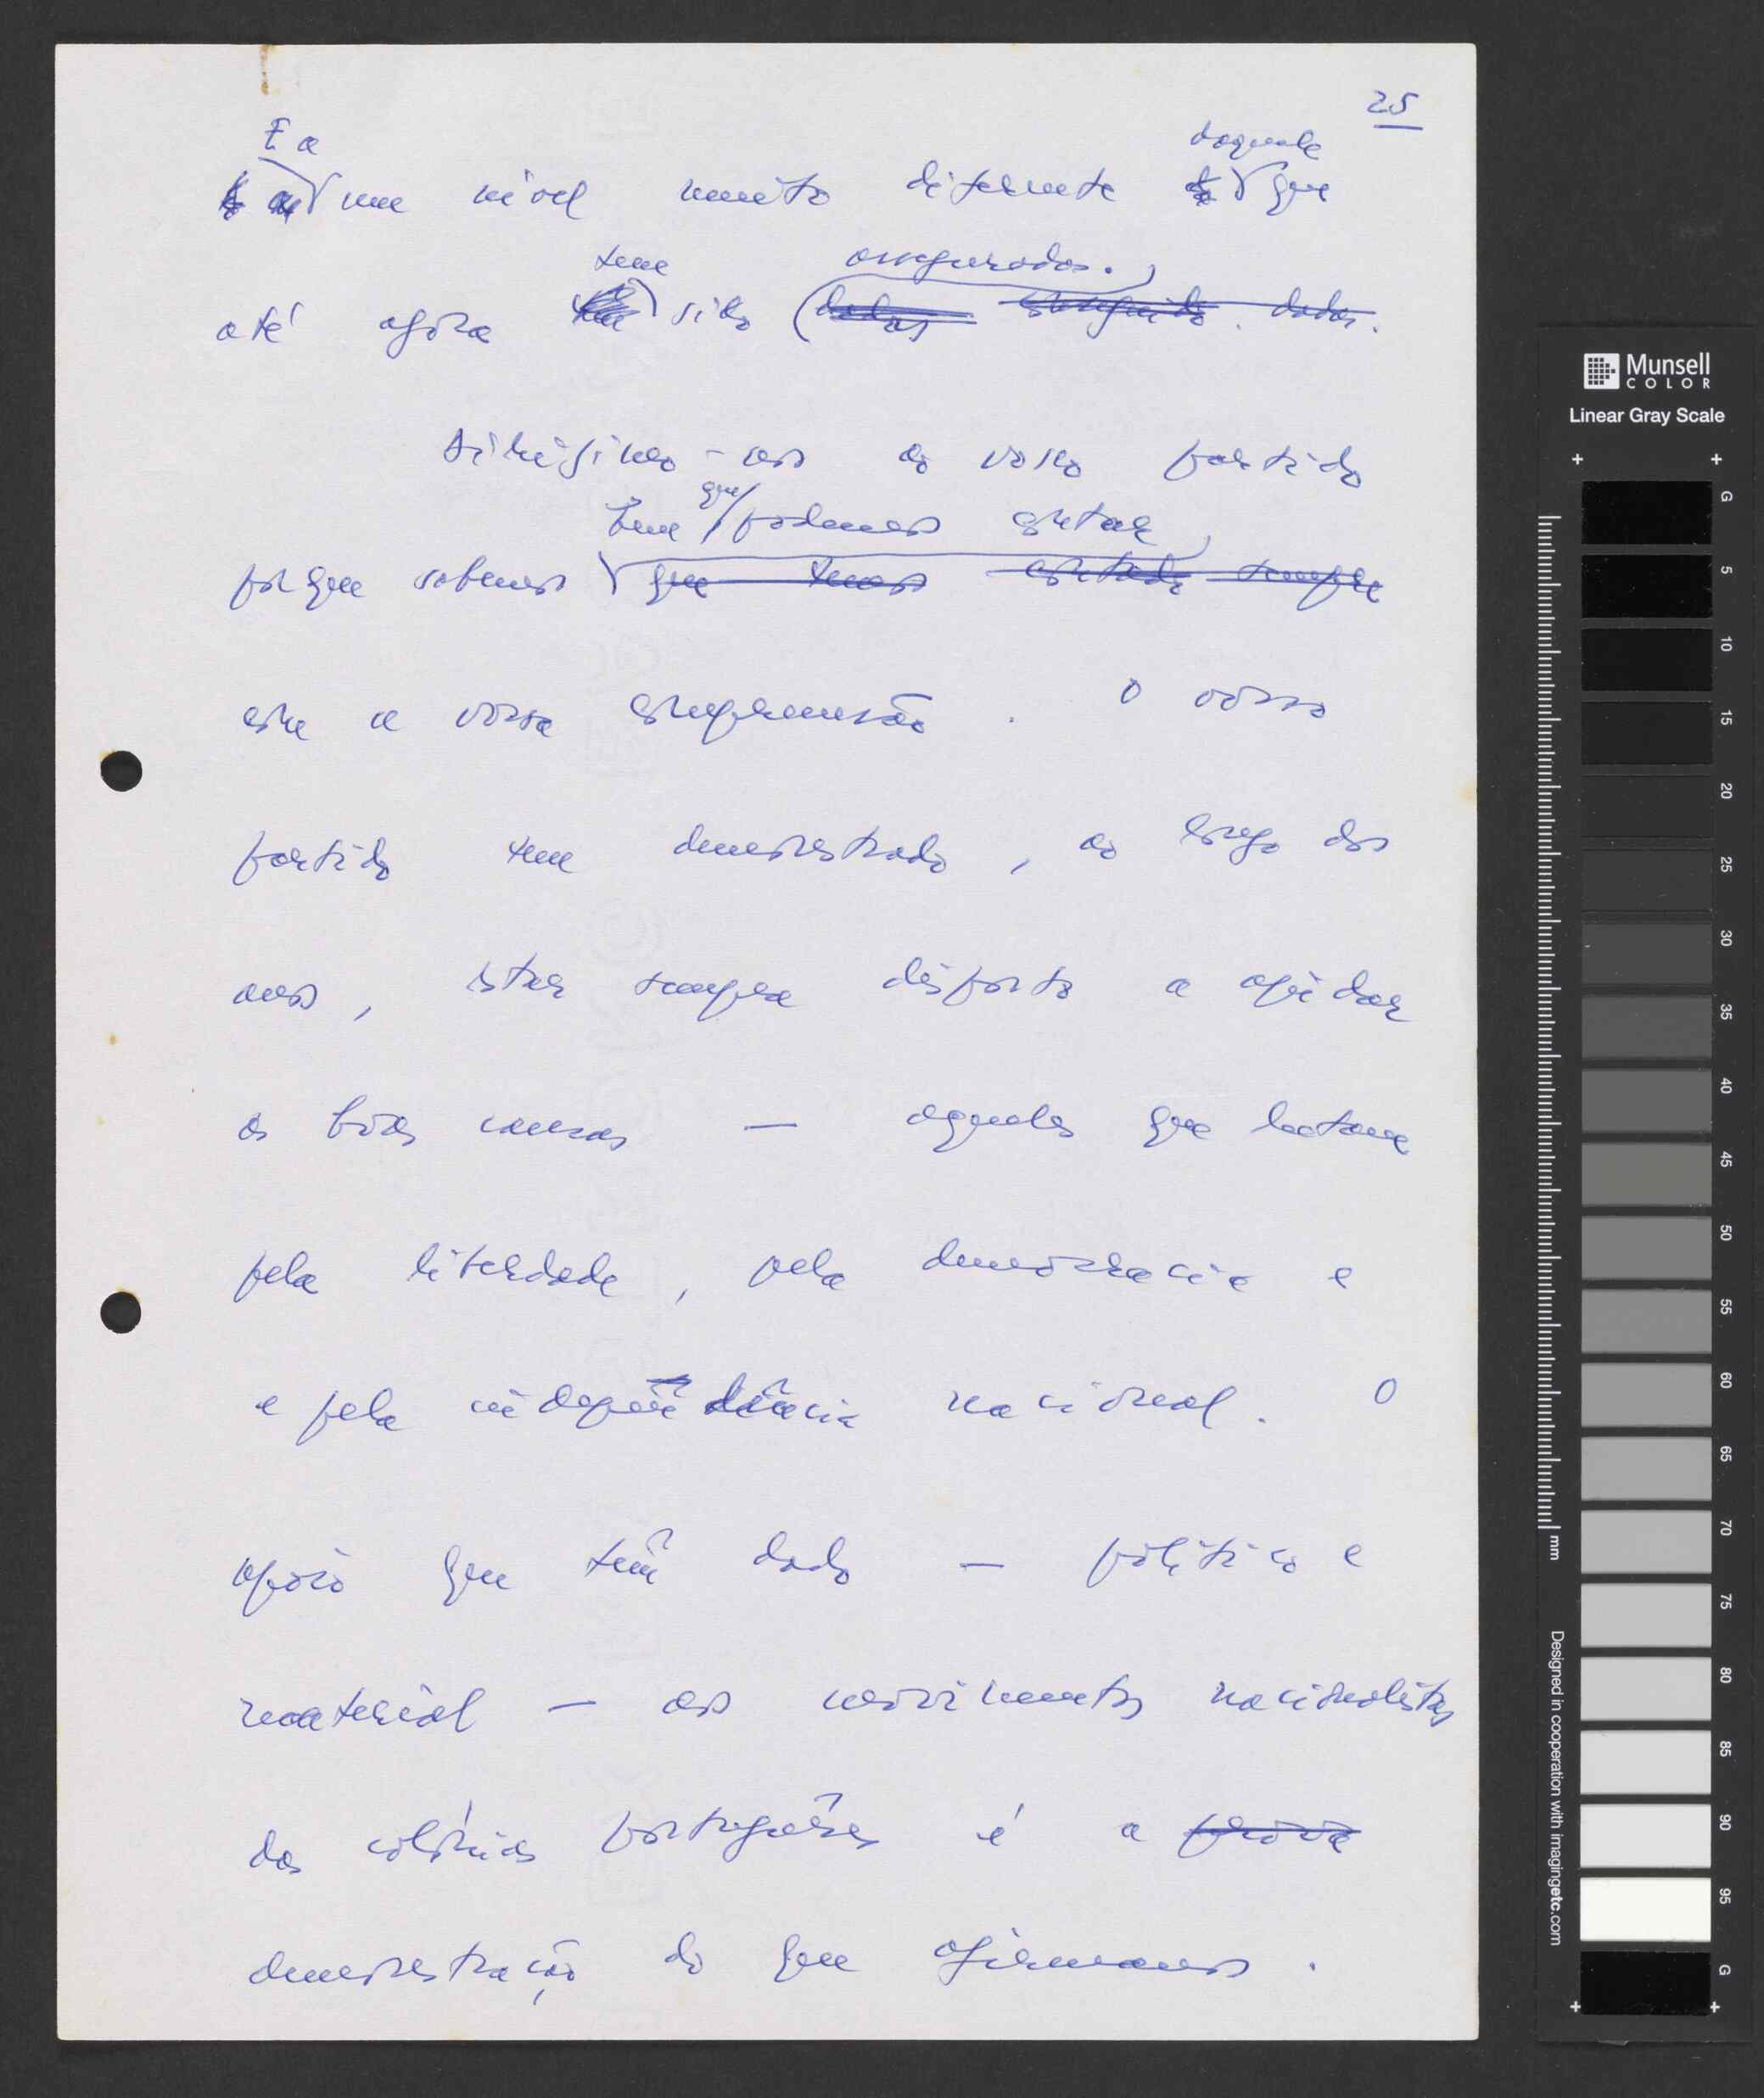 25
E a daquele
um nível muito diferente que
tem assegurados.
até agora sido dados conseguido. dados.
Dirigimo-nos ao vosso partido
bem que podemos contar
porque sabemos que temos contado sempre
com a vossa compreensão. O vosso
partido tem demonstrado, ao longo dos
anos, estar sempre disposto a ajudar
as boas causas — aqueles que lutam
pela liberdade, pela democracia e
e pela independência nacional. O
apoio que têm dado — político e
material — aos movimentos nacionalistas
das colónias portuguêses é a prova
demonstração do que afirmamos.
Munsell
COLOR
Linear Gray Scale
G
5
10
15
20
25
30
35
40
45
50
55
60
65
70
75
80
85
90
95
G
mm
Designed in cooperation with imagingetc.com